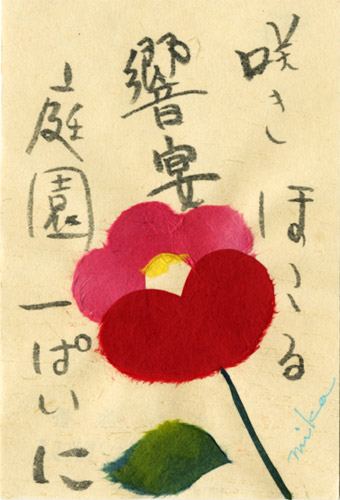 咲きほこる
響宴
庭園一ぱいに
mika